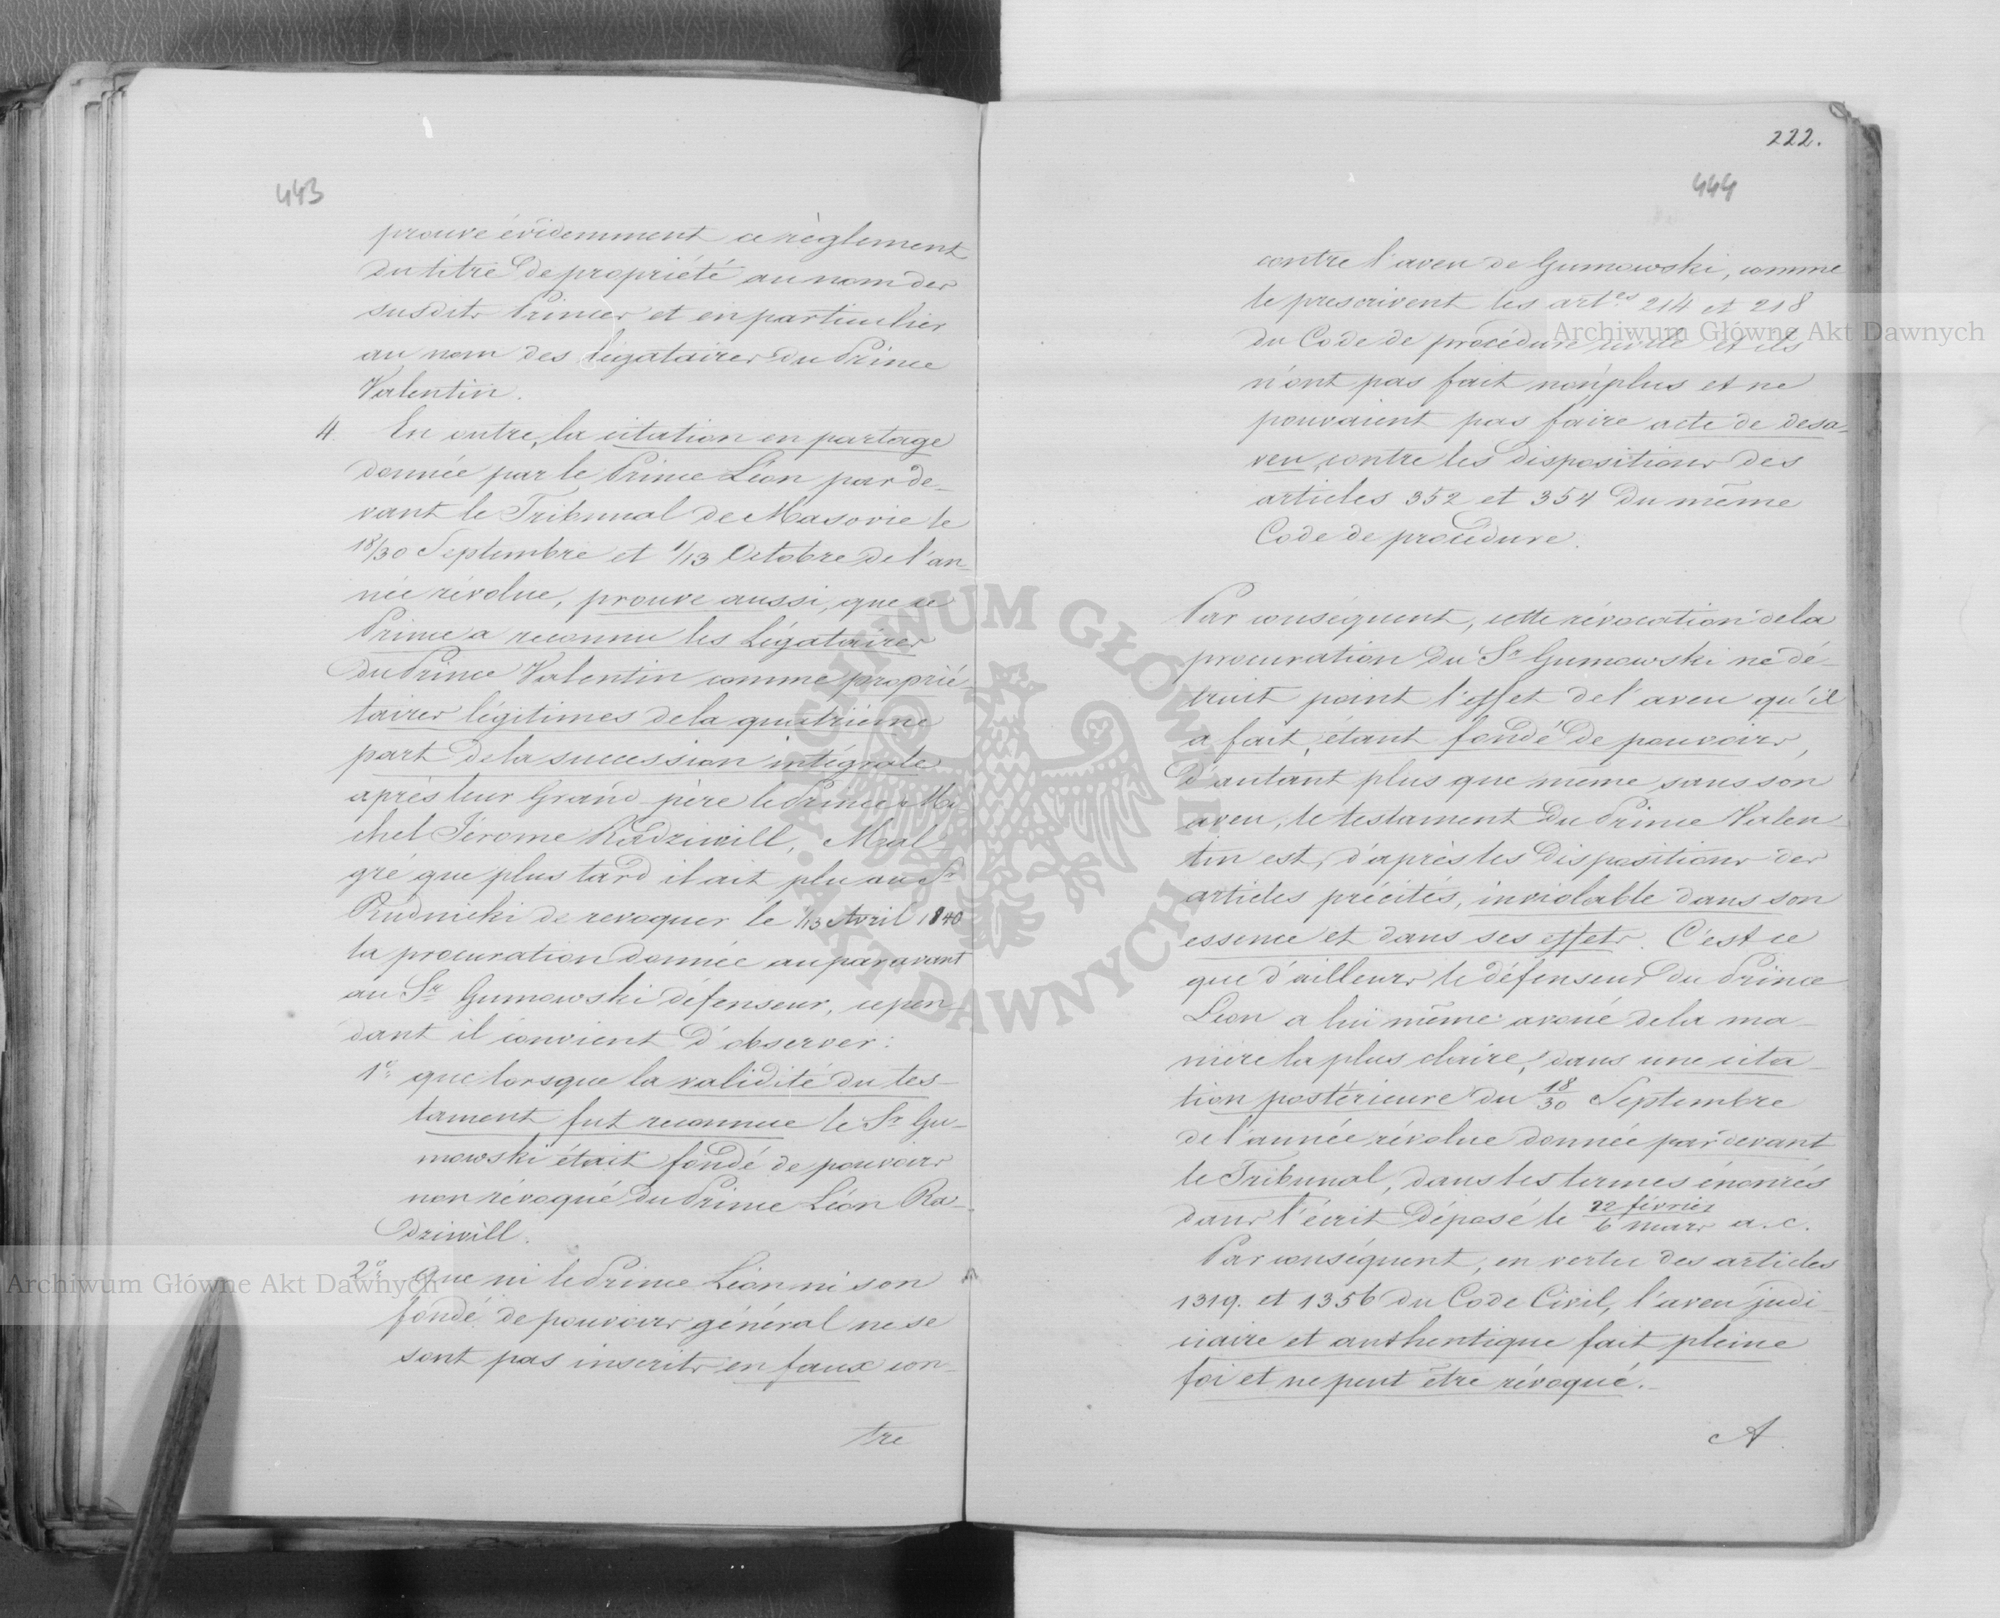 443
prouve évidemment ce règlement
du titre de propriété au nom des
susdits Princes et en particulier
au nom des légataires du Prince
Valentin.
4. En outre, la citation en partage
donnée par le Prince Léon par de-
vant le Tribunal de Masovie le
18/30 Septembre et 1/13 Octobre de l'an-
née révolue, prouve aussi, que ce
Prince a reconnu les Légataires
du Prince Valentin comme proprié-
taires légitimes de la quatrième
part de la succession intégrale
après leur Grand père le Prince Mi
chel Jérome Radziwill, Mal-
gré que plus tard il ait plu au Sr
Rudnicki de revoquer le 1/13 Avril 1840
la procuration donnée auparavant
au Sr Gumowski défenseur, cepen-
dant il convient d'observer:
1o que lorsque la validité du tes-
tament fut reconnue le Sr Gu-
mowski était fondé de pouvoirs
non révoqué du Prince Léon Ra-
dziwill.
2o Que ni le Prince Léon ni son
fondé de pouvoirs général ne se
sont pas inscrits en faux con-
tre
222.
444
contre l'aveu de Gumowski, comme
le prescrivent les artles 214 et 218
du Code de procédure civile et ils
n'ont pas fait nonplus et ne
pouvaient pas faire acte de desa-
veu, contre les dispositions des
articles 352 et 354 du même
Code de procédure.
Par conséquent, cette révocation de la
procuration du Sr Gumowski ne dé-
truit point l'effet de l'aveu qu'il
a fait, étant fondé de pouvoirs,
d'autant plus que même sans son
aveu, le testament du Prince Valen-
tin est, d'après les dispositions des
articles précités, inviolable dans son
essence et dans ses effets. C'est ce
que d'ailleurs le défenseur du Prince
Léon a lui même avoué de la ma-
nière la plus claire, dans une cita-
tion postérieure du 18/30 Septembre
de l'année révolue donnée pardevant
le Tribunal, dans les termes énoncés
dans l'écrit déposé le 22 février/6 mars a. c.
Par conséquent, en vertu des articles
1319. et 1356 du Code Civil, l'aveu judi-
ciaire et authentique fait pleine
foi et ne peut être révoqué.
A
Archiwum Główne Akt Dawnych
Archiwum Główne Akt Dawnych
ARCHIWUM GŁÓWNE
AKT DAWNYCH